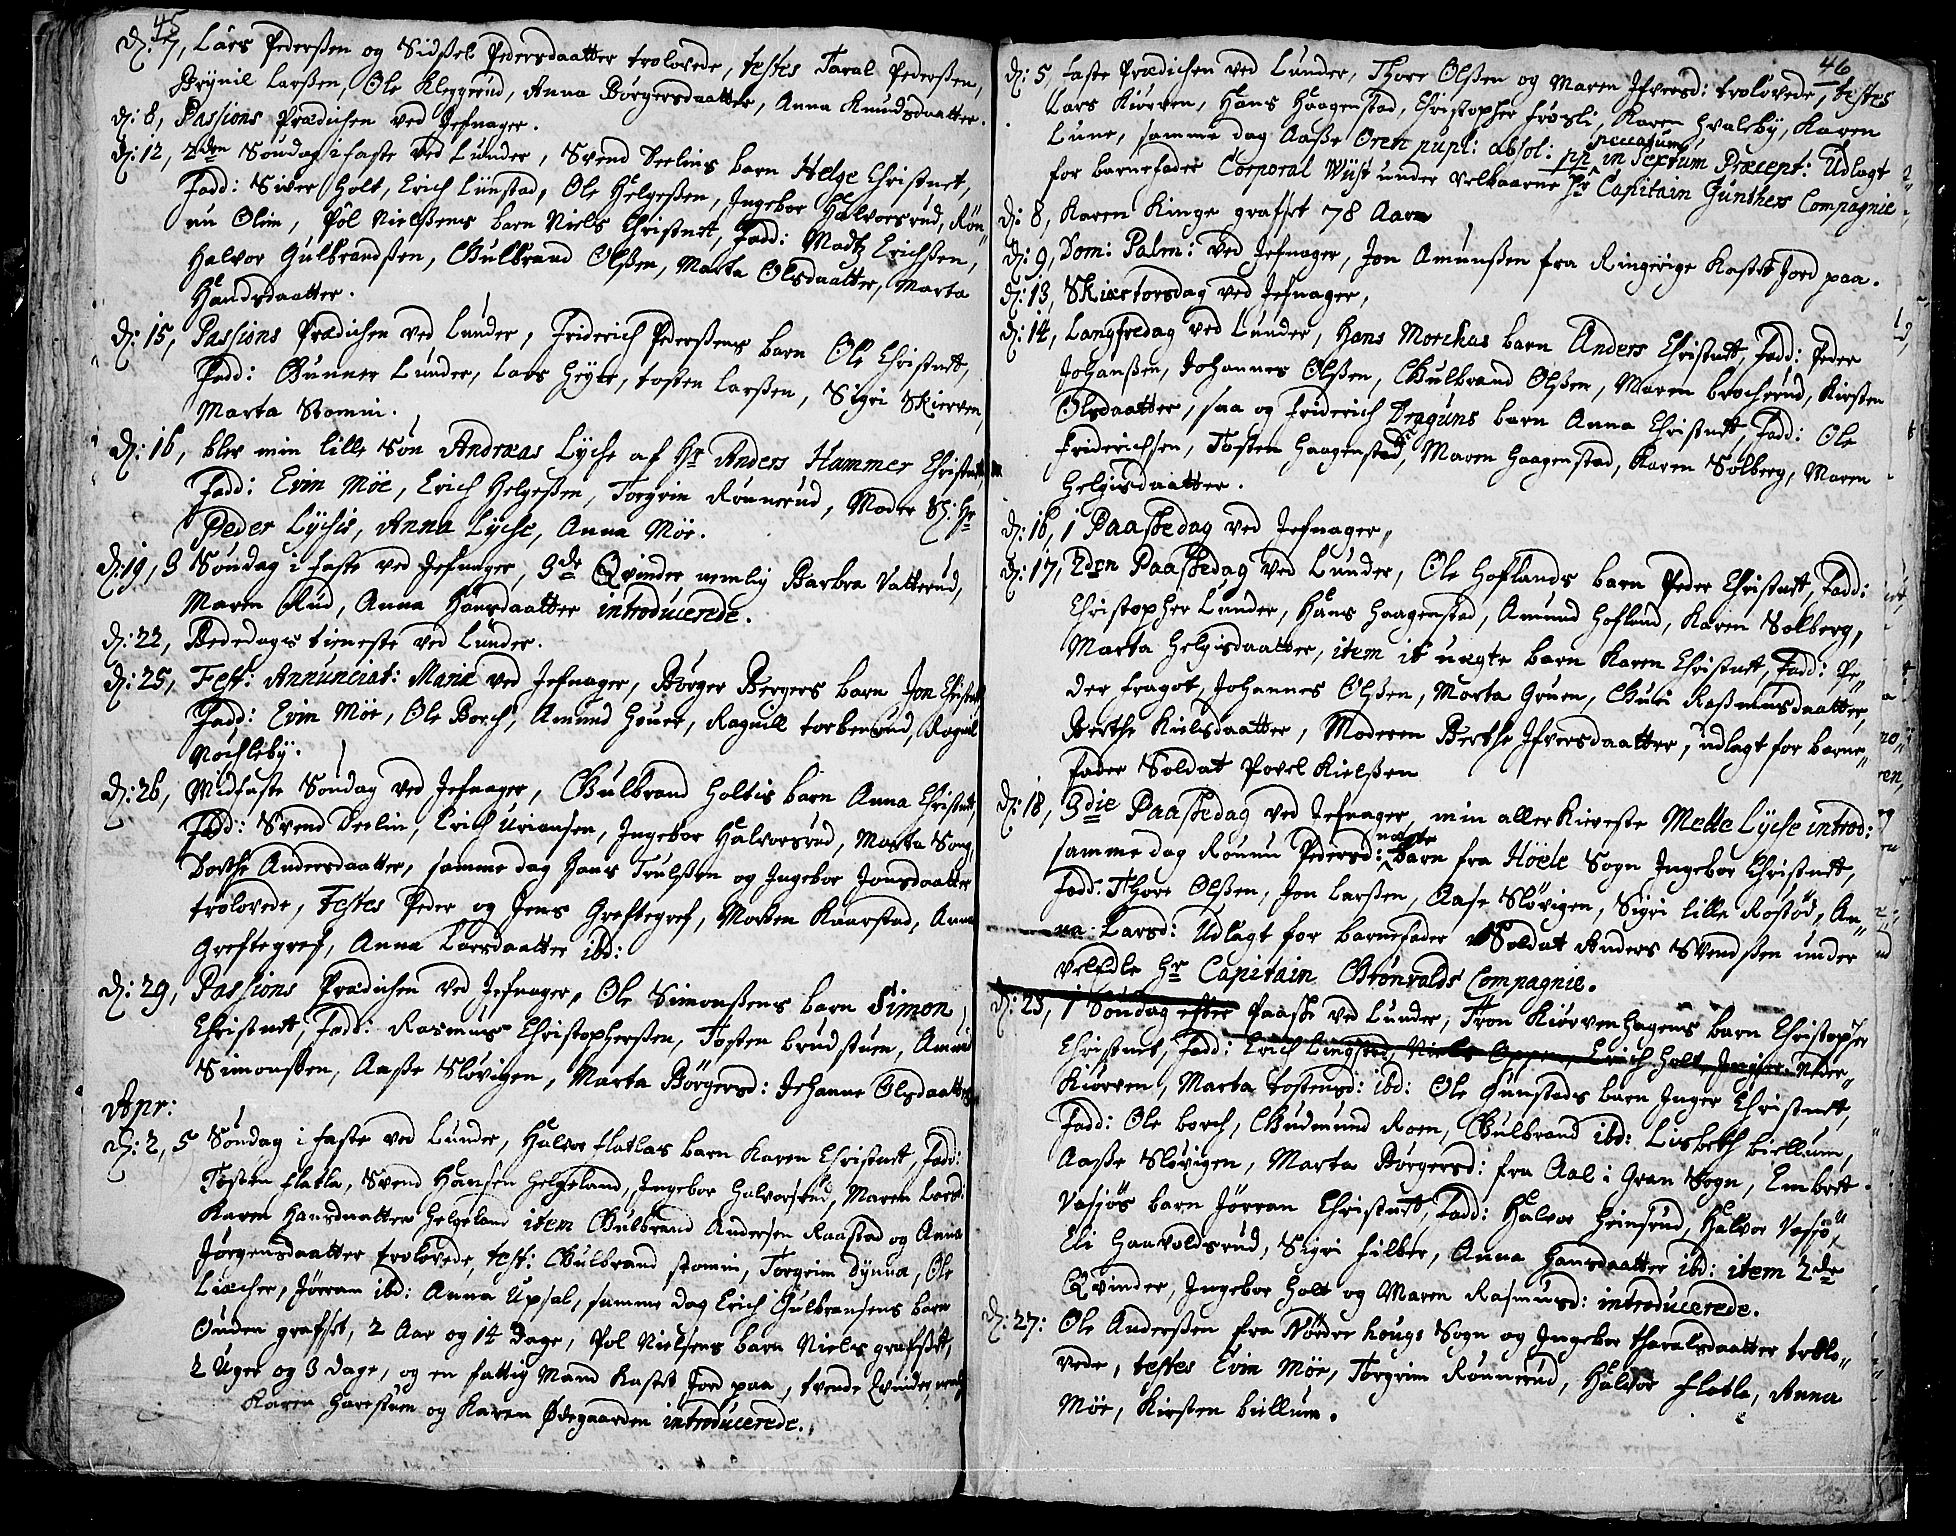 45
D: 7, Lars Pederßen og Sidßel Pedersdaatter trolovede, testes Taral Pederßen,
Brynil Larßen, Ole Kleggerud, Anna Börgersdaatter, Anna Knudsdaatter.
D: 8, Passions Prædichen ved Jefnager.
D: 12, 2den Søndag i faste ved Lunder, Svend Deelins barn Helge Christnet,
Fadd: Siver Holt, Erich Lünstad, Ole Helgeßen, Ingebor Halvorsrud, Rön„
nu Olim, Pol Nielßens barn Niels Christnet, Fadd: Madtz Erichßen,
Halvor Gulbrandßen, Gulbrand Olßen, Marta Olsdaatter, Marta
Handsdaatter.
D: 15, Passions Prædichen ved Lunder, Friderich Pederßens barn Ole Christnet,
Fadd: Gunner Lunder, Lars Heyer, Tosten Larßen, Sigri Skierven,
Marta Stomin.
D: 16, blev min lille Søn Andræas Lyche af Hr Anders Hammer Christnet
Fadd: Evin Möe, Erich Helgeßen, Torgrim Rönnerud, Moder S: Hr
Peder Lychis, Anna Lyche, Anna Möe.
D: 19, 3 Søndag i faste ved Jefnager, 3de Qvinder nemlig Barbra Vatterud,
Maren Rud, Anna Hansdaatter introducerede.
D: 22, Bededags tieneste ved Lunder.
D: 25, Fest: Annunciat: Mariæ ved Jefnager, Börger Bergers barn Jon Christnet
Fadd: Evin Möe, Ole Borch, Amund Houer, Ragnill Torbenrud, Ragnil
Nochleby.
D: 26, Midfaste Søndag ved Jefnager, Gulbrand Holtis barn Anna Christnet,
Fadd: Svend Deelin, Erich Uriansen, Ingebor Halvorsrud, Marta Song,
Dorthe Andersdaatter, samme dag Hans Trulßen og Ingebor Jonsdaatter
trolovede, Testes Peder og Jens Greftegref, Morten Kaarstad, Anna
Greftegref, Anna Larsdaatter ibd:
D: 29, Passions Prædichen ved Jefnager, Ole Simonßens barn Simon,
Christnet, Fadd: Rasmus Christopherßen, Tosten Brudstuen, Amund
Simonßen, Aaße Slövigen, Marta Börgersd: Johanne Olsdaatter
Apr:
D: 2, 5 Søndag i faste ved Lunder, Halvor Flatlas barn Karen Christnet, Fadd:
Tosten Flatla, Svend Hanßen Helgeland, Ingebor Halvorsrud, Maren Larsd:
Karen Hansdaatter Helgeland item Gulbrand Andersen Raastad og Anna
Jörgensdaatter trolovede, test: Gulbrand Stomin, Torgrim Dynna, Ole
Liæcher, Jörran ibd: Anna Upsal, samme dag Erich Gulbransens barn
Guden grafset, 2 Aar og 14 Dage, Pol Nielsens barn Niels grafset,
2 Uger og 3 dage, og en fattig Mand Kastet Jord paa, tvende Qvinder, neml:
Karen Harestuen og Karen Ödegaarden introducerede.
46
D: 5, faste Prædichen ved Lunder, Thore Olßen og Maren Ifversd: trolovede, testes
Lars Kiörven, Hans Haagenstad, Christopher Frösli, Karen Hvaleby, Karen
Lune, samme dag Aaße Oren pupl: absol: pp peccatum in Sextum Præcept: Udlagt
for barnefader Corporal Wüst under Velbaarne Hr Capitain Günthers Compagnie.
D: 8, Karen Kinge grafset 78 Aar
D: 9, Dom: Palm: ved Jefnager, Jon Amunßen fra Ringerige Kastet Jord paa.
D: 13, Skiertorsdag ved Jefnager,
D: 14, Langfredag ved Lunder, Hans Morchas barn Anders Christnet, Fadd: Peder
Johanßen, Johannes Olßen, Gulbrand Olßen, Maren Brocherud, Kirsten
Olsdaatter, saa og Friderich Draguns barn Anna Christnet, Fadd: Ole
Friderichsen, Tosten Haagenstad, Maren Haagenstad, Karen Solberg, Maren
Helgisdaatter.
D: 16, 1 Paaskedag ved Jefnager,
D: 17, 2den Paaskedag ved Lunder, Ole Hoflands barn Peder Christnet, Fadd:
Christopher Lunder, Hans Haagenstad, Amund Hoflund, Karen Solberg,
Marta Helgisdaatter, item it uægte barn Karen Christnet, Fadd: Pe„
der Fragot, Johannes Olßen, Marta Gruen, Guri Raßmusdaatter,
Berthe Kielsdaatter, Moderen Berthe Ifversdaatter, udlagt for barne„
fader Soldat Povel Kielßen
D: 18, 3die Paaskedag ved Jefnager, min allerkiereste Mette Lyche introd:
samme dag Rönnu Pedersd: uægte Barn fra Höele Sogn Ingebor Christnet,
Fadd: Thore Olßen, Jon Larsen, Aase Slövigen, Sigri lille Rostöd, An„
na Larsd: Udlagt for barnefader Soldat Anders Svendßen under
Velædle Hr Capitain Grönvalds Compagnie.
D: 23, 1 Søndag efter Paaske ved Lunder, Tron Kiörvenhagens barn Christopher
Christnet, Fadd: Erich Lingsted, Niels Oppen, Erich Holt, Ingier Neder„
Kiörven, Marta Tostensd: ibd: Ole Gunstads barn Inger Christnet,
Fadd: Ole Borch, Gudmund Roen, Gulbrand ibd: Lisbeth Biellum,
Aaße Slövigen, Marta Börgersd: fra Aal i Gran Sogn, Embret
Vasjös barn Jörran Christnet, Fadd: Halvor Heinsrud, Halvor Vasjö,
Eli Haavoldsrud, Sigri Filber, Anna Hansdaatter ibd: item 2de
Qvinder, Ingebor Holt og Maren Rasmusd: introducerede.
D: 27: Ole Anderßen fra Nördre hougs Sogn og Ingebor Tharalsdaatter trolo„
vede, testes Evin Möe, Torgrim Rönnerud, Halvor Flatla, Anna
Möe, Kirsten Biellum.